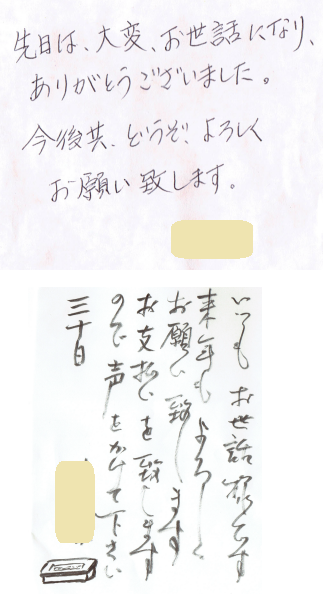 先日は、大変、お世話になり、
ありがとうございました。
今後共、どうぞ、よろしく
お願い致します。
いつもお世話様です
来年もよろしく
お願い致します
お支払いを致します
ので声をかけて下さい
三十日